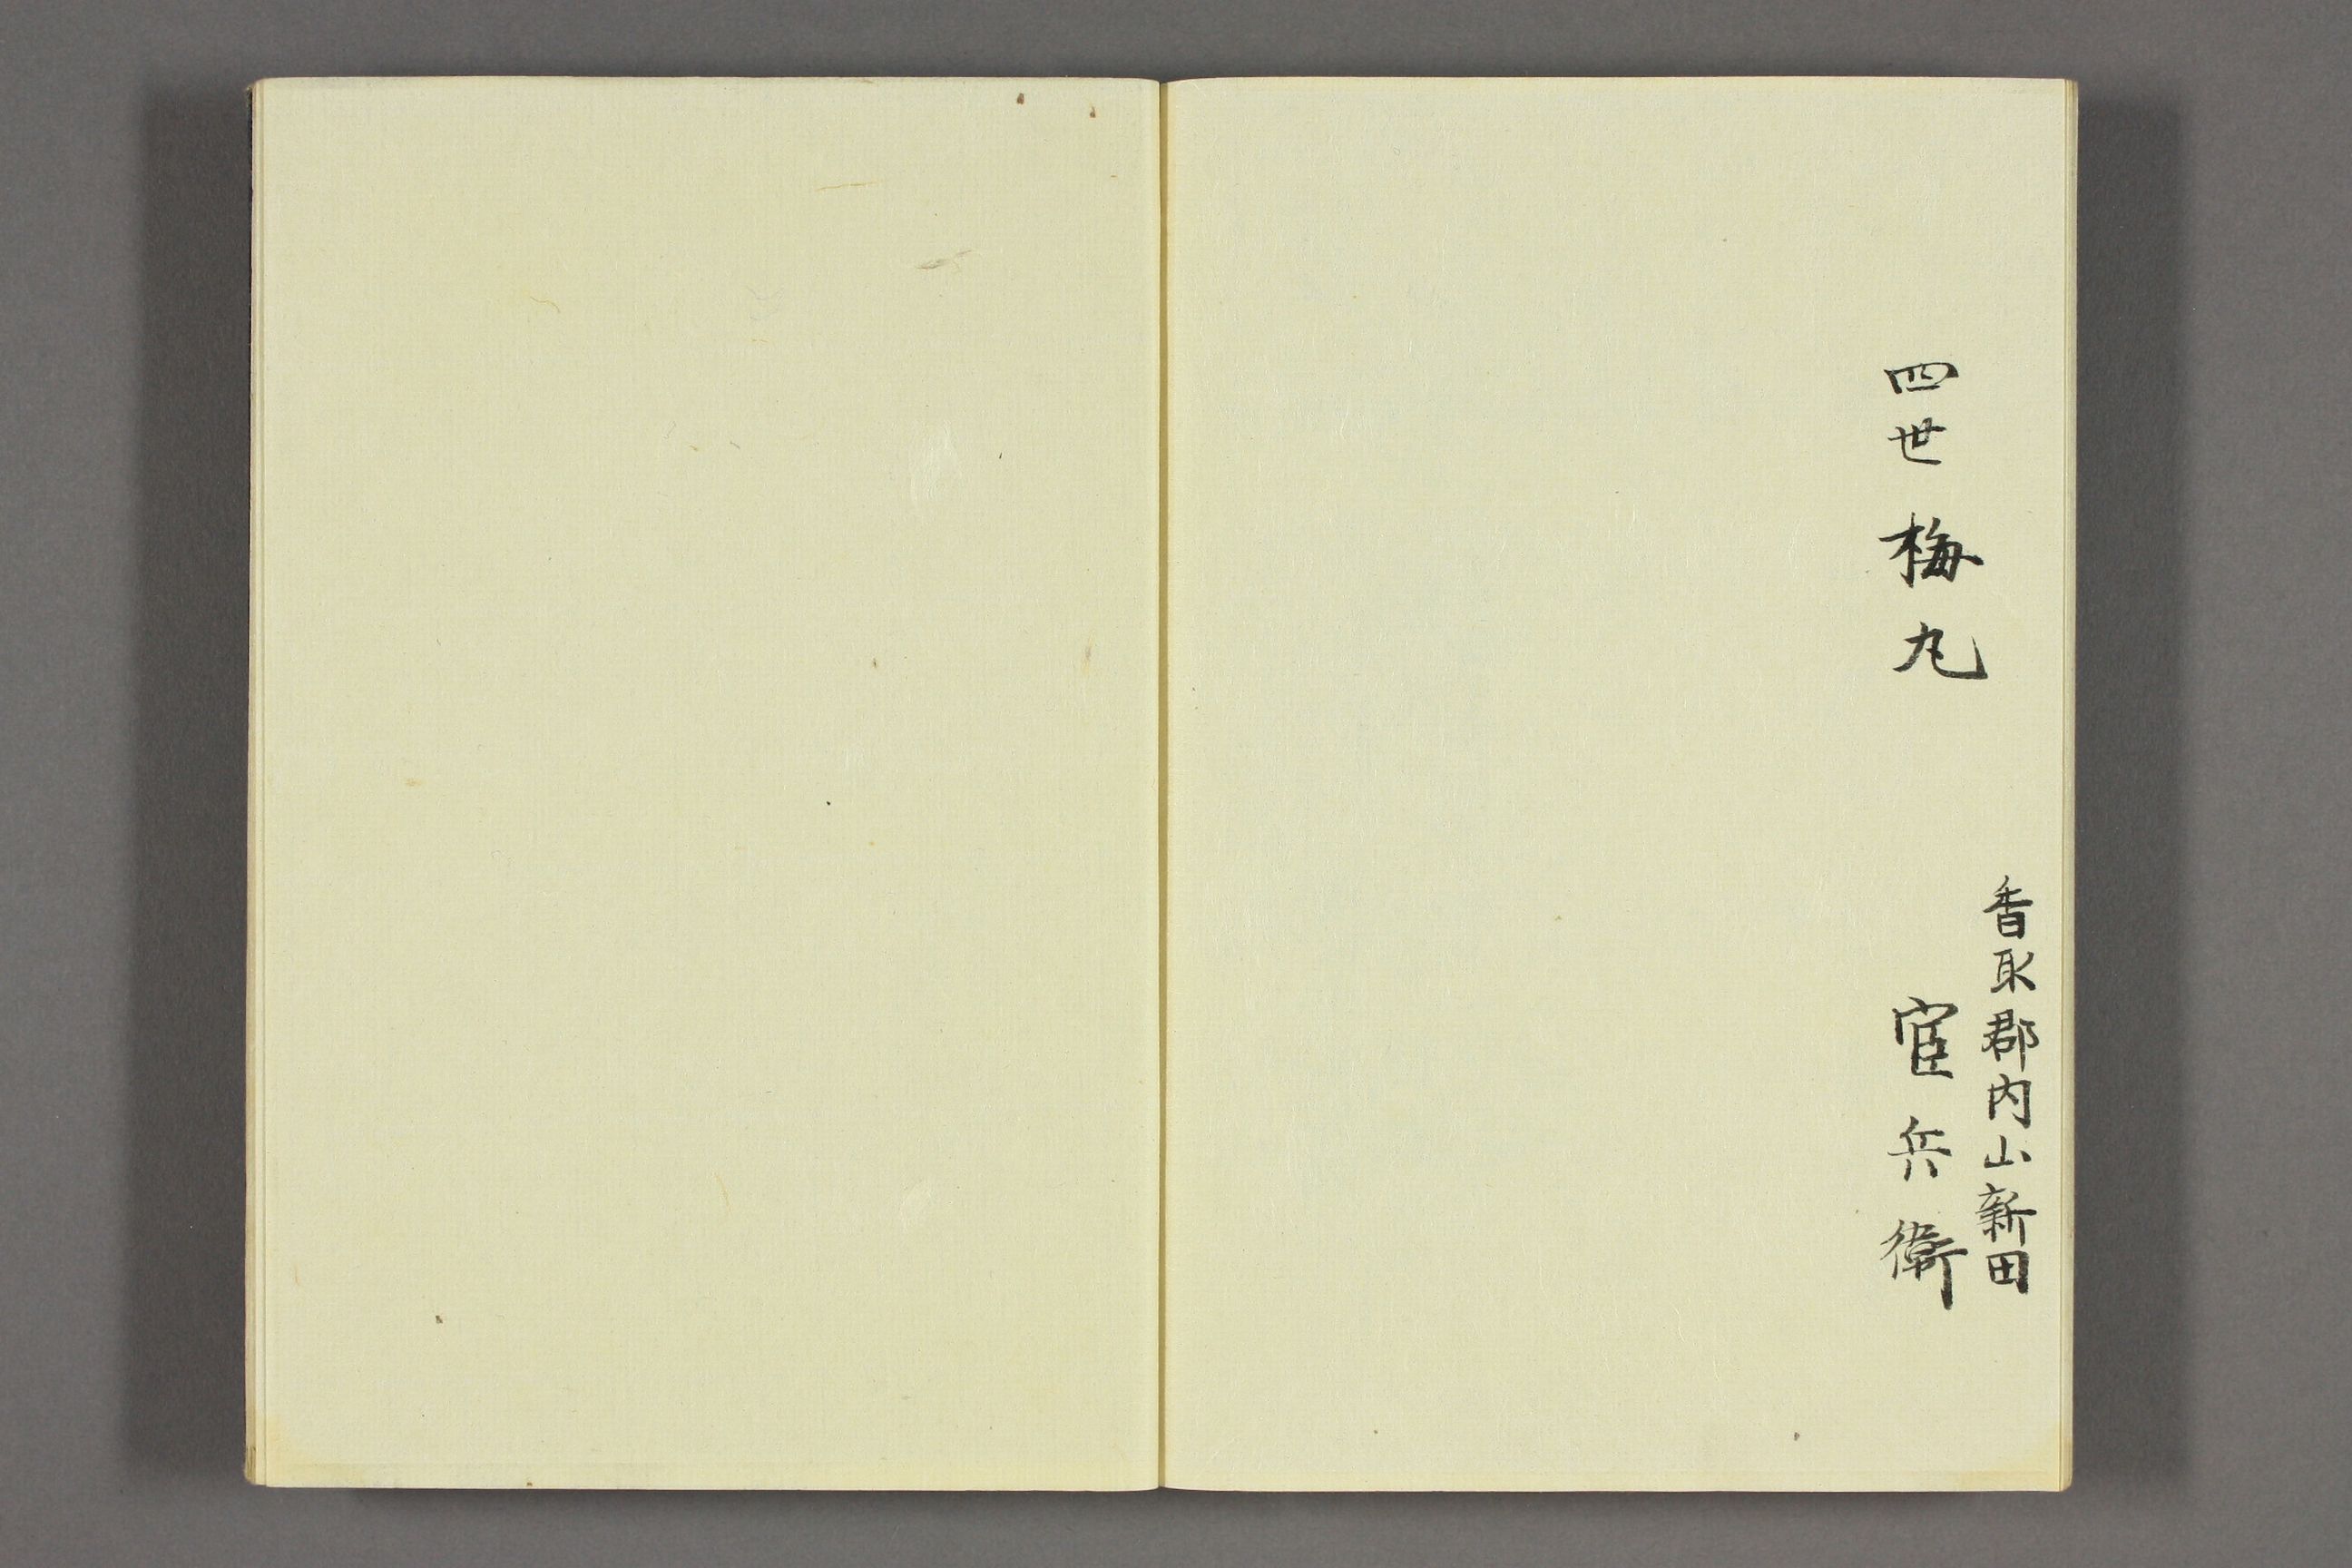 香取郡内山新田
四世 梅丸 宦兵衛